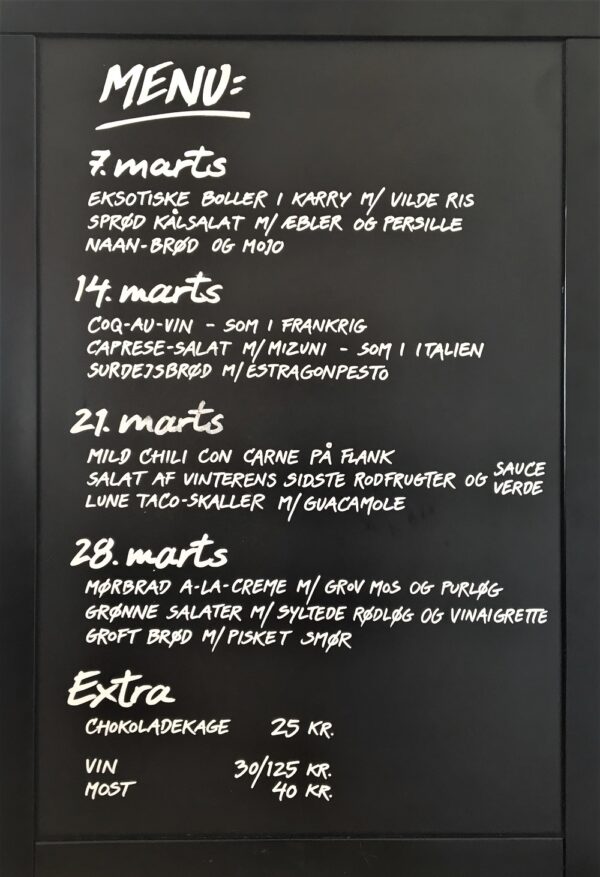 MENU:
7. marts
EKSOTISKE BOLLER I KARRY M/ VILDE RIS
SPRØD KÅLSALAT M/ ÆBLER OG PERSILLE
NAAN-BRØD OG MOJO
14. marts
COQ-AU-VIN - SOM I FRANKRIG
CAPRESE-SALAT M/ MIZUNI - SOM I ITALIEN
SURDEJSBRØD M/ ESTRAGONPESTO
21. marts
MILD CHILI CON CARNE PÅ FLANK
SALAT AF VINTERENS SIDSTE RODFRUGTER OG SAUCE VERDE
LUNE TACO-SKALLER M/ GUACAMOLE
28. marts
MØRBRAD A-LA-CREME M/ GROV MOS OG PURLØG
GRØNNE SALATER M/ SYLTEDE RØDLØG OG VINAIGRETTE
GROFT BRØD M/ PISKET SMØR
Extra
CHOKOLADEKAGE 25 KR.
VIN 30/125 KR.
MOST 40 KR.